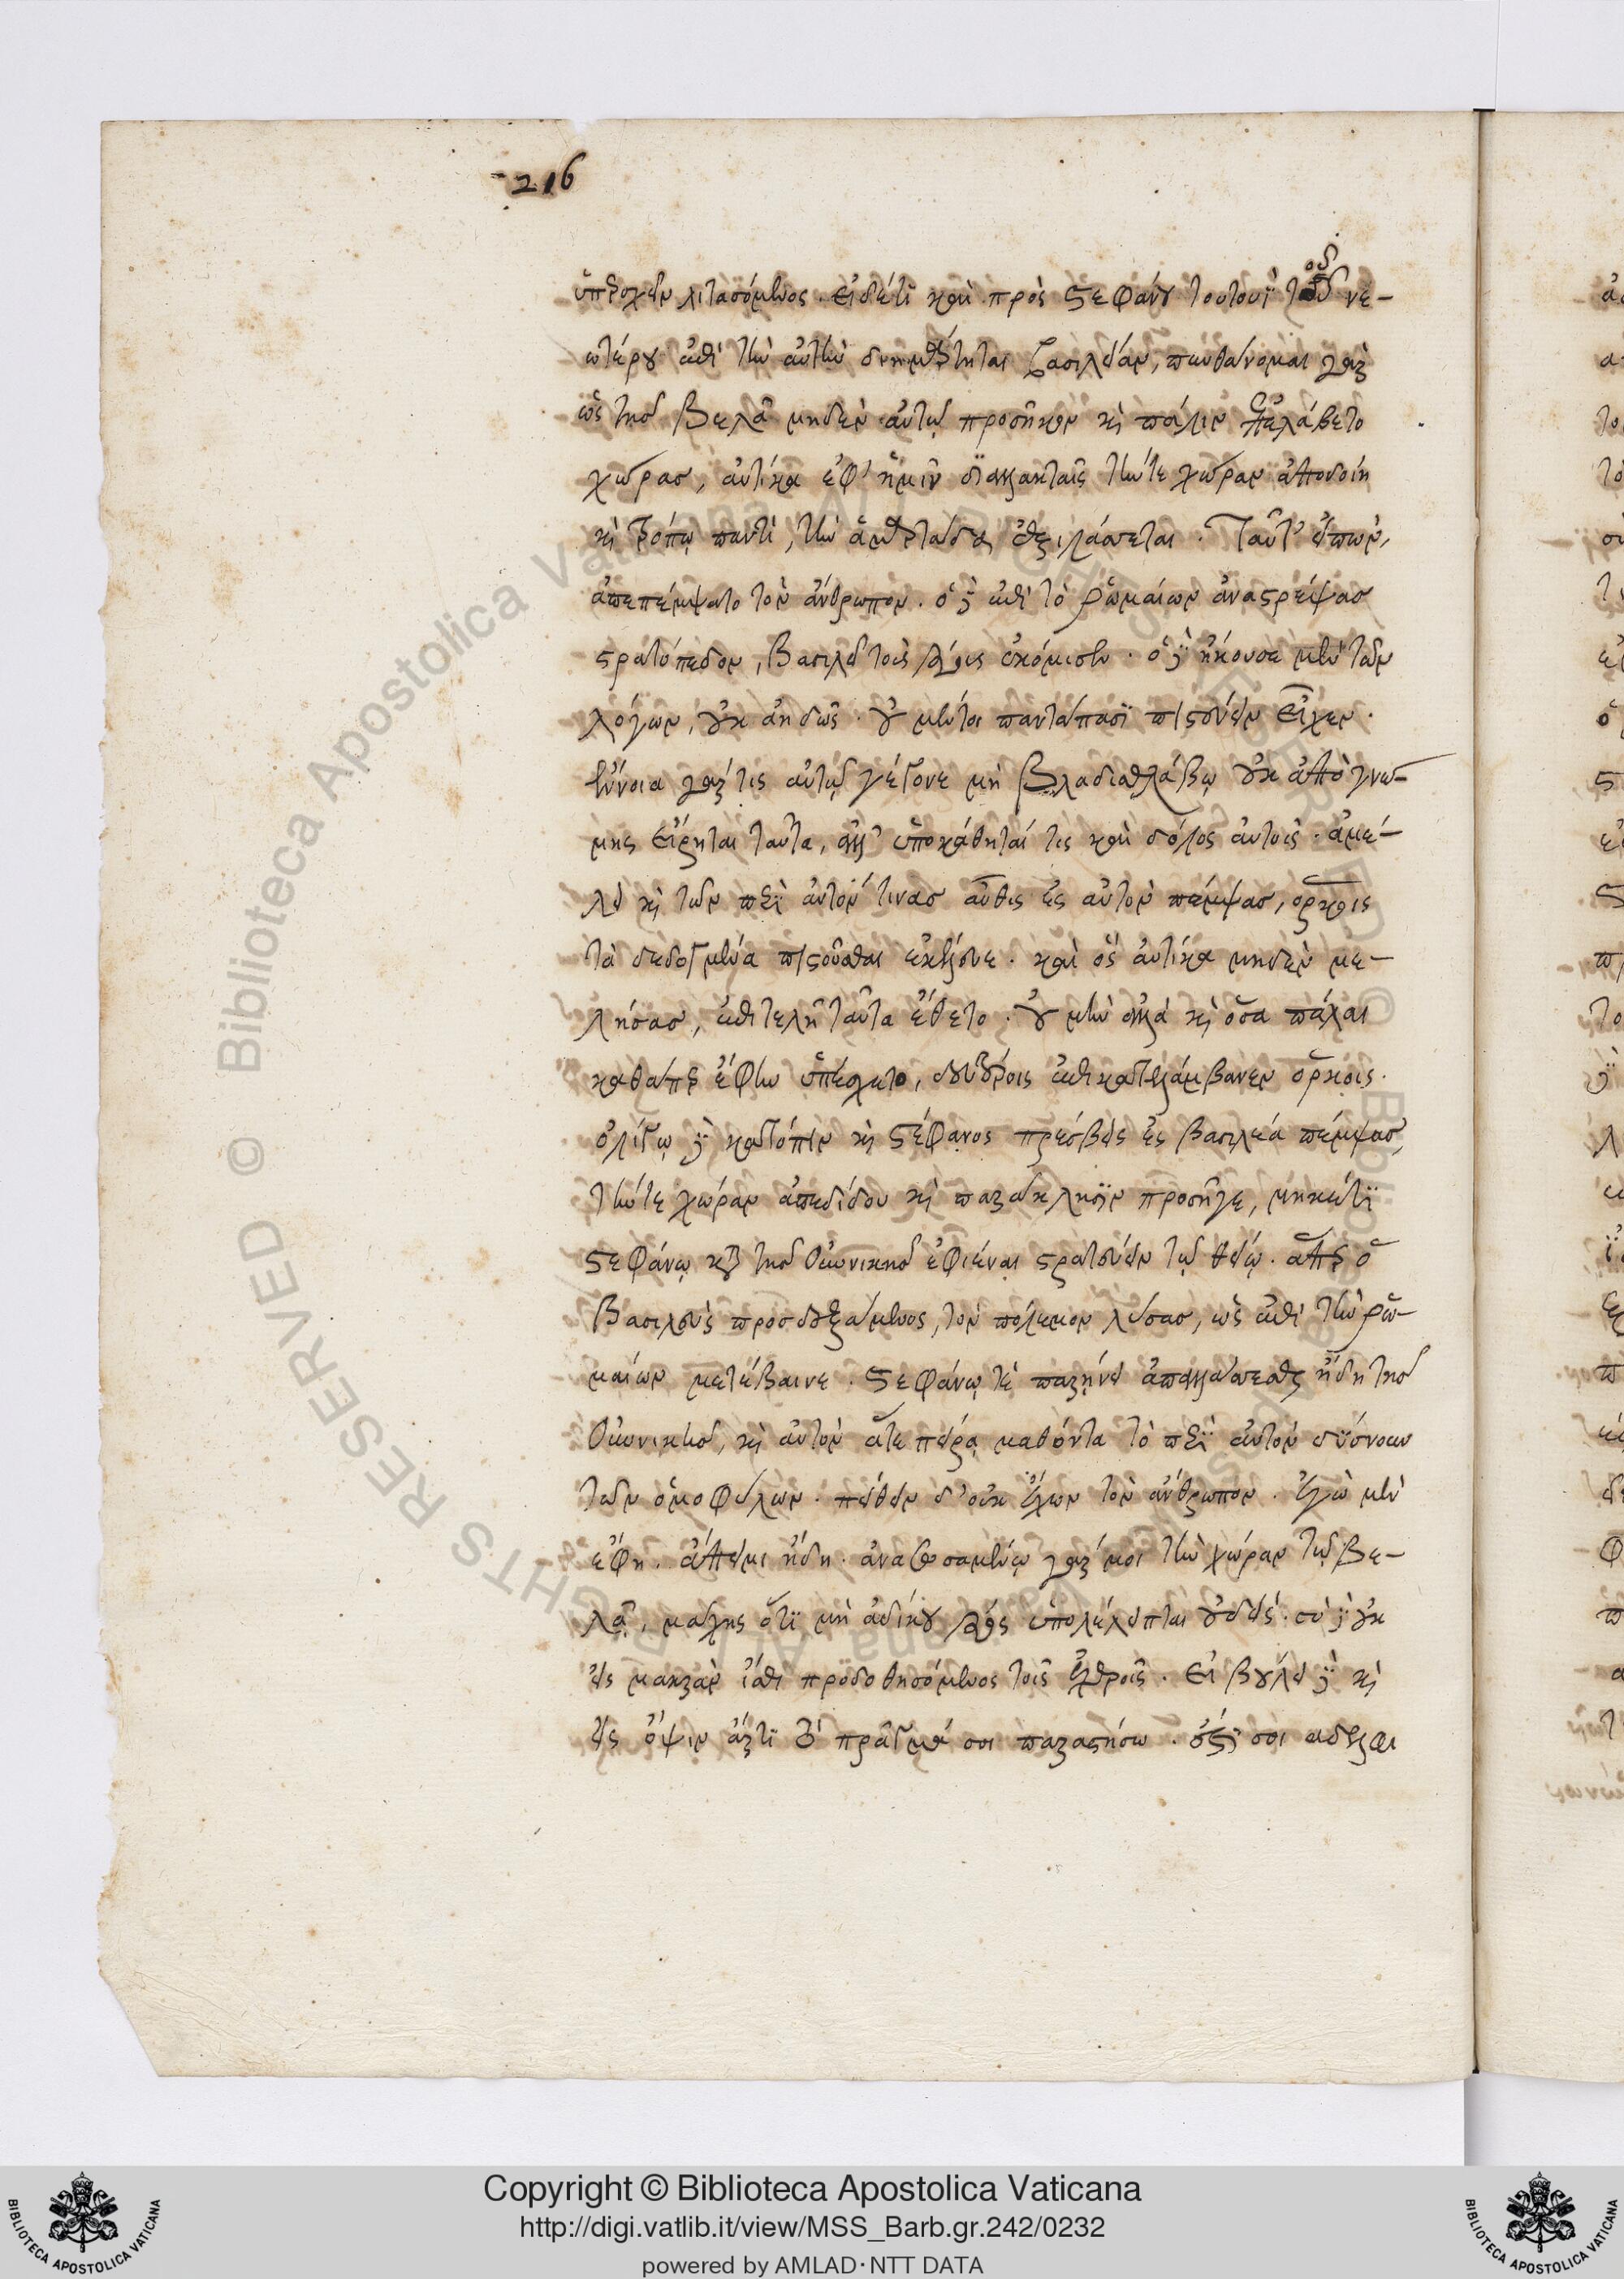 216
ὑπεροχὴν λιτασόμενος. εἰ δέ τι καὶ πρὸς Στεφάνου τουτουῒ τοῦ νε-
ωτέρου ἐπὶ τὴν αὐτὴν βασιλείαν, πυνθάνομαι γὰρ
ὡς τῆς Βελᾶ μηδὲν αὐτῷ προσῆκον καὶ πάλιν ἐπελάβετο
χώρας, αὐτίκα ἐφ' ἡμῖν διαλλακταῖς τήν τε χώραν ἀποδοίη
καὶ τρόπῳ παντὶ, τὴν ἁμαρτάδα ἐξιλάσεται. Ταῦτ' εἰπὼν,
ἀπεπέμψατο τὸν ἄνθρωπον. ὁ δὲ ἐπὶ τὸ ῥωμαίων ἀναστρέψας
στρατόπεδον, βασιλεῖ τοὺς λόγους ἐκόμισεν. ὁ δὲ ἤκουσε μὲν τῶν
λόγων, οὐκ ἀηδῶς. οὐ μέντοι παντάπασι πιστεύειν εἶχεν.
ἔννοια γάρ τις αὐτῷ γέγονε μὴ Βλαδισθλάβῳ οὐκ ἀπὸ γνώ-
μης εἴρηται ταῦτα, ἀλλ' ὑποκάθηταί τις καὶ δόλος αὐτοῖς. ἀμέ-
λει καὶ τῶν περὶ αὐτὸν τινας αὖθις ἐς αὐτὸν πέμψας, ὅρκοις
τὰ δεδογμένα πιστοῦσθαι ἐκέλευε. καὶ ὃς αὐτίκα μηδὲν με-
λήσας, ἐπιτελῆ ταῦτα ἔθετο. οὐ μὲν ἀλλὰ καὶ ὅσα πάλαι
καθάπερ ἔφην ὑπέσχετο, δευτέροις ἐπικατελάμβανεν ὅρκοις.
ὀλίγῳ δὲ κατόπιν καὶ Στέφανος πρέσβεις ἐς βασιλέα πέμψας,
τήν τε χώραν ἀπεδίδου καὶ παράκλησιν προσῆγε, μηκέτι
Στεφάνῳ κατὰ τῆς Οὐωνικῆς ἐφιέναι στρατεύειν τῷ θείῳ. ἅπερ ὁ
Βασιλεὺς προσδεξάμενος, τὸν πόλεμον λύσας, ὡς ἐπὶ τὴν ῥω-
μαίων μετέβαινε. Στεφάνῳ τὲ παρῄνει ἀπαλλάσσεσθαι ἤδη τῆς
Οὐωνικῆς, καὶ αὐτὸν ἅτε πείρᾳ μαθόντα τὸ περὶ αὐτὸν δύσνουν
τῶν ὁμοφύλων. πείθειν δ' οὐκ ἔχων τὸν ἄνθρωπον. Ἐγὼ μὲν
ἔφη. ἄπειμι ἤδη. ἀνασωσαμένῳ γάρ μοι τὴν χώραν τῷ Βε-
λᾷ, μάχης ὅτι μὴ ἀδίκου λόγος ὑπολέλειπται οὐδείς. σὺ δὲ οὐκ
εἰς μακρὰν ἴσθι προδοθησόμενος τοῖς ἐχθροῖς. Εἰ βούλει δὲ καὶ
εἰς ὄψιν ἄρτι τὸ πρᾶγμά σοι παραστήσω. σοι ἀδελφι